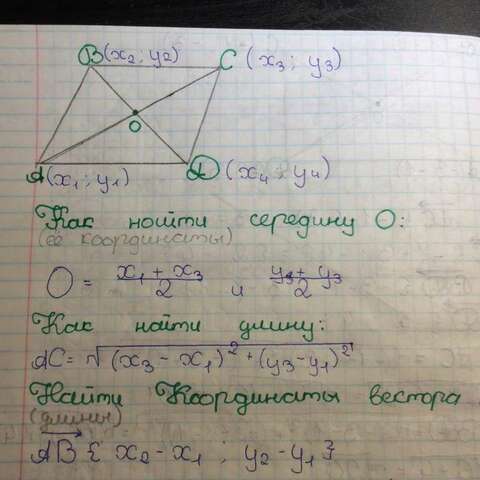 B(x₂; y₂) C (x₃; y₃)
O
A(x₁; y₁) D (x₄; y₄)
Как найти середину O:
(её координаты)
O = x₁ + x₃ / 2 и y₁ + y₃ / 2
Как найти длину:
AC = √(x₃ - x₁)² + (y₃ - y₁)²
Найти Координаты вектора
(длины)
AB { x₂ - x₁ ; y₂ - y₁ }